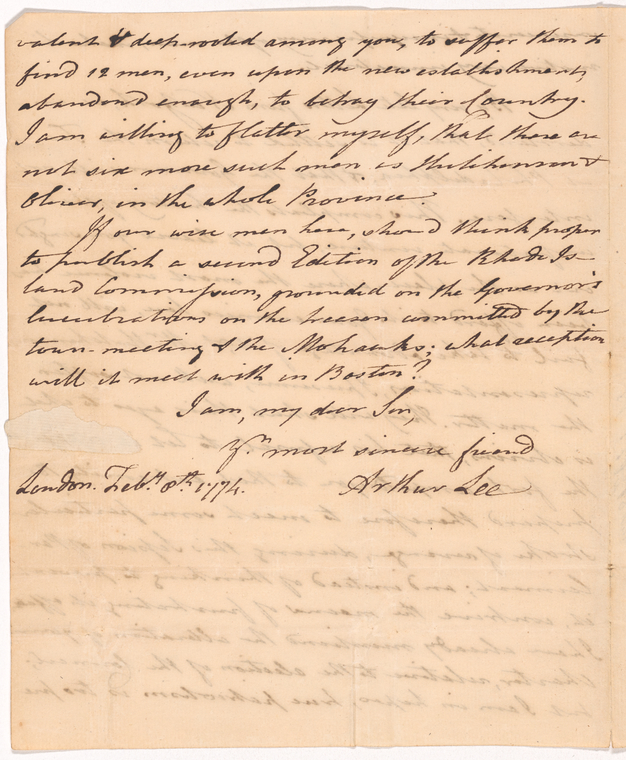 valent & deep-rooted among you, to suffer them to
find 12 men, even upon the new establishment,
abandon'd enough, to betray their Country.
I am willing to flatter myself, that there are
not six more such men as Hutchinson &
Oliver, in the whole Province.
If our wise men here, shou'd think proper
to publish a second Edition of the Rhode Is-
land Commission, grounded on the Governor's
lucubrations on the treason committed by the
town-meeting & the Mohawks; what reception
will it meet with in Boston?
I am, my dear Sir,
Yr. most sincere friend
London. Feby. 8th. 1774. Arthur Lee